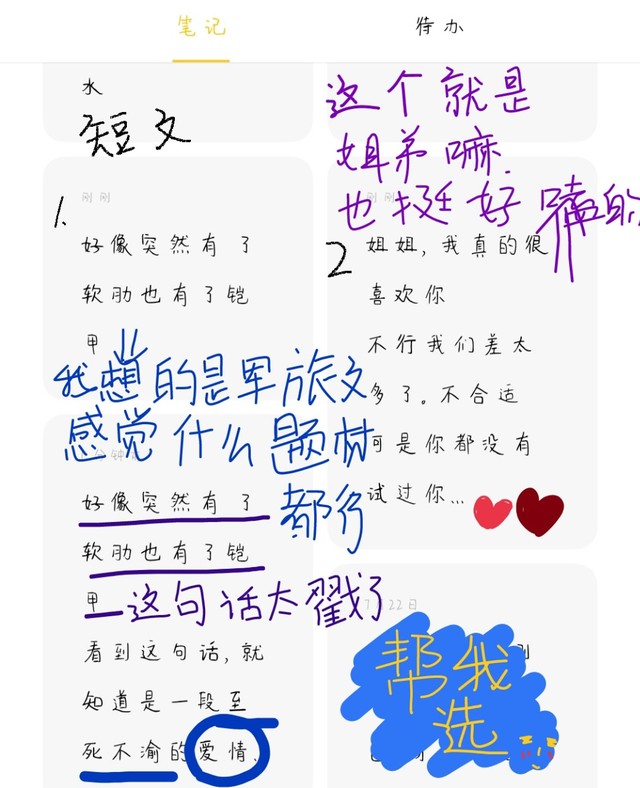 笔记
待办
水
短文
这个就是
姐弟嘛.
也挺好嗑的
刚刚
1.
好像突然有了
软肋也有了铠
甲
刚刚
2
姐姐,我真的很
喜欢你
不行我们差太
多了。不合适
可是你都没有
试过你...
我想的是军旅文
感觉什么题材
都行
分钟
好像突然有了
软肋也有了铠
甲
这句话太戳了
看到这句话,就
知道是一段至
死不渝的爱情、
7月22日
帮我
选